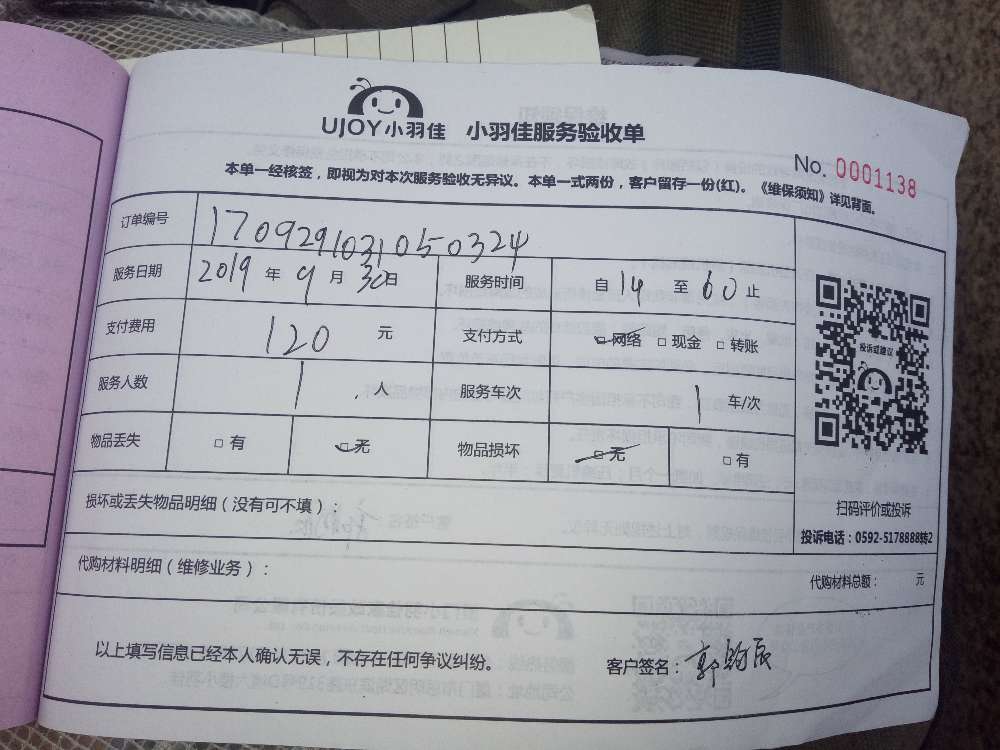 UJOY小羽佳 小羽佳服务验收单
No. 0001138
本单一经核签，即视为对本次服务验收无异议。本单一式两份，客户留存一份(红)。《维保须知》详见背面。
订单编号 1709291031050324
服务日期 2019 年 9 月 30日 服务时间 自 14 至 60 止
支付费用 120 元 支付方式 □网络 □现金 □转账
服务人数 1 人 服务车次 1 车/次
物品丢失 □有 □无 物品损坏 □无 □有
投诉或建议
扫码评价或投诉
投诉电话：0592-5178888转2
损坏或丢失物品明细（没有可不填）：
代购材料明细（维修业务）： 代购材料总额： 元
以上填写信息已经本人确认无误，不存在任何争议纠纷。 客户签名：郭